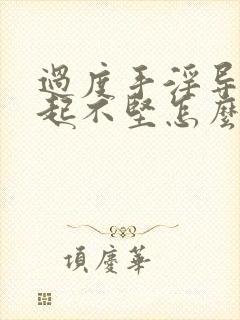 過度手淫导
起不堅怎麼
項慶華